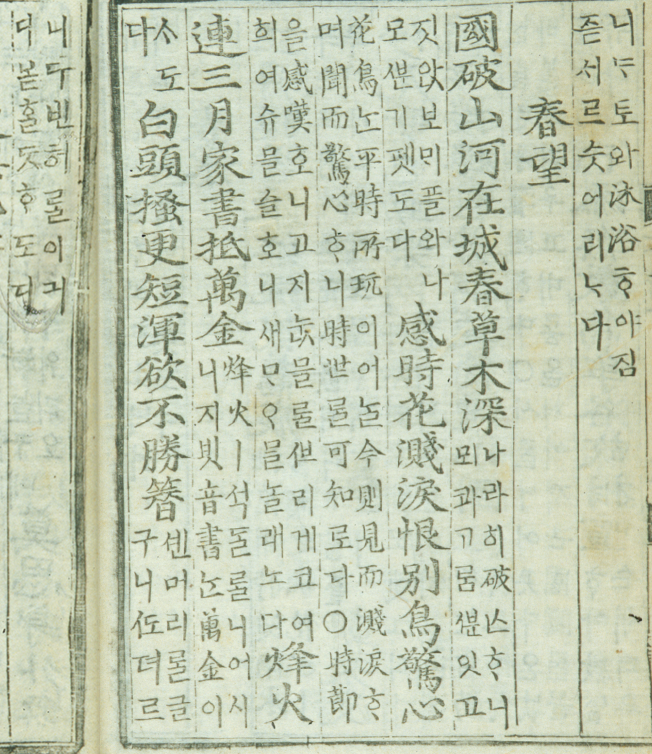 니ᄯᅡ토와沐浴ᄒᆞ야짐
즌서르숫어리ᄂᆞ다
春望
國破山河在城春草木深
나라히破亡ᄒᆞ니
뫼콰ᄀᆞ롬ᄲᅮᆫ잇고
잣앉보ᄆᆡ플와나
모ᄲᅮᆫ기펫도다
感時花濺淚恨別鳥驚心
花鳥ᄂᆞᆫ平時所玩이어ᄂᆞᆯ今則見而濺淚ᄒᆞ
며聞而驚心ᄒᆞ니時世ᄅᆞᆯ可知로다○時節
을感嘆호니고지눈믈롤ᄲᅳ리게코여
희여슈믈슬호니새ᄆᆞᄋᆞ믈놀래노다
烽火
連三月家書抵萬金
烽火ㅣ석ᄃᆞᆯᄅᆞᆯ니어시
니지븻音書ᄂᆞᆫ萬金이
ᄉᆞ도
다
白頭搔更短渾欲不勝簪
센머리ᄅᆞᆯ글
구니ᄯᅩ뎌르
니ᄯᅡ빈혀ᄅᆞᆯ이긔
디몯홀ᄃᆞᆺᄒᆞ도다